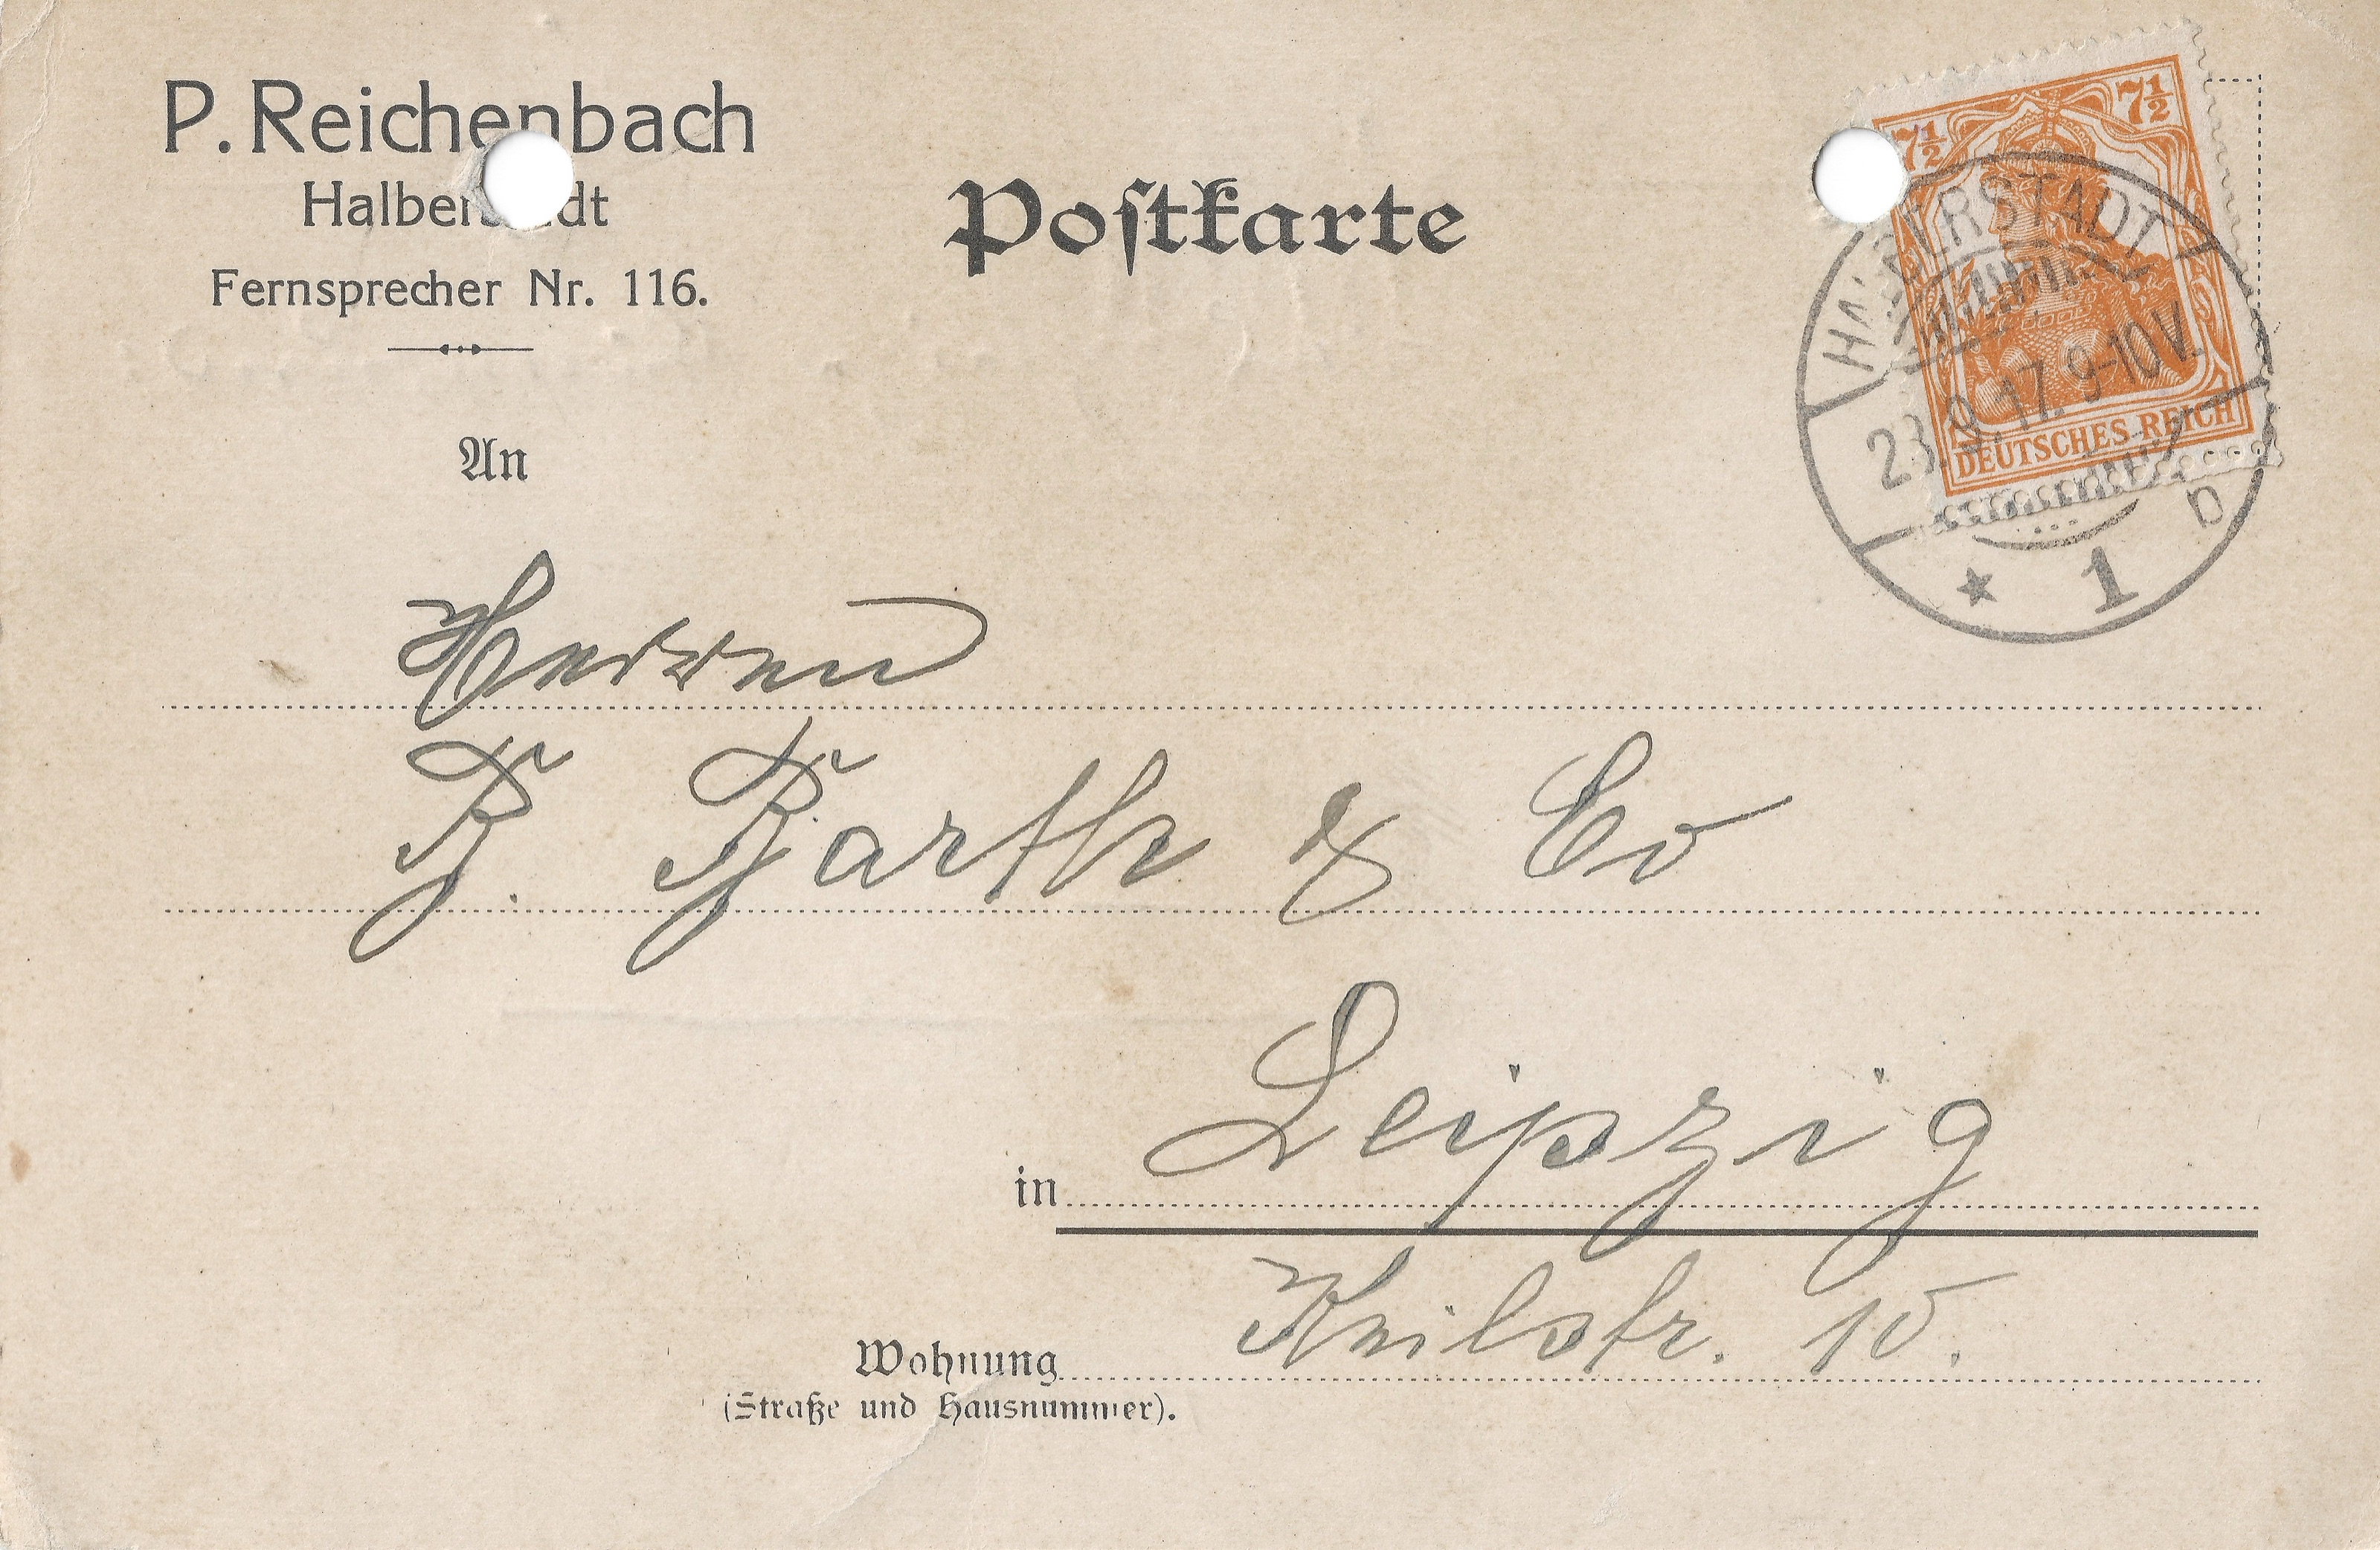 P. Reichenbach
Halberstadt
Fernsprecher Nr. 116.
Poſtkarte
7½ 7½
DEUTSCHES REICH
HALBERSTADT
23.9.17. 9-10V.
* 1 b
An
Herren
B. Barth & Co
in Leipzig
Wohnung Keilstr. 10.
(Straße und Hausnummer).